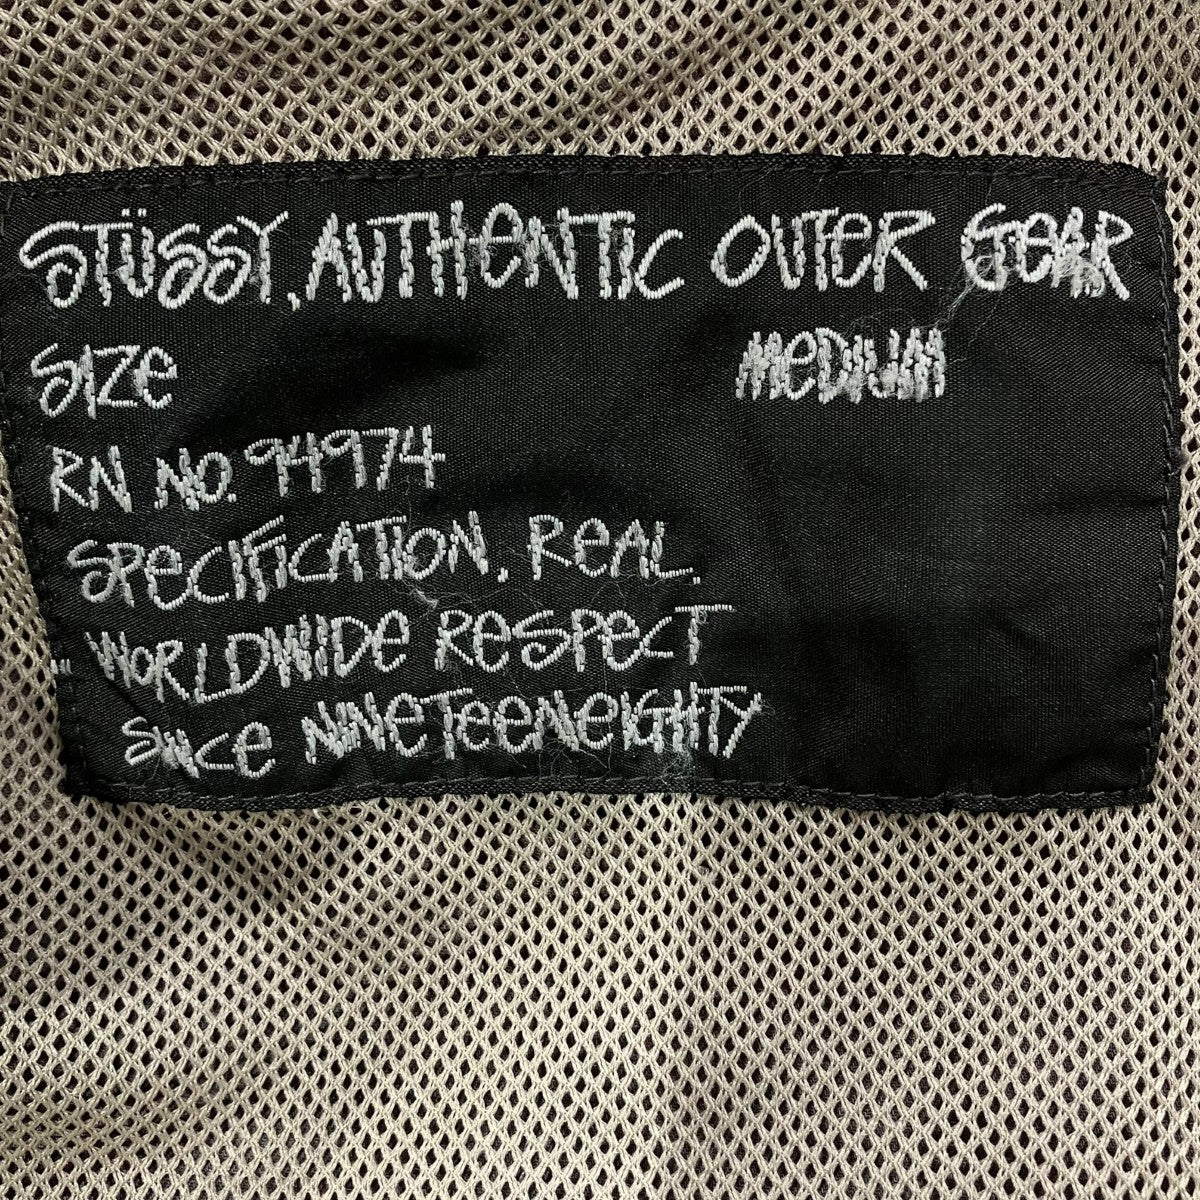 STÜSSY. AUTHENTIC OUTER GEAR
SIZE MEDIUM
RN NO. 94974
SPECIFICATION. REAL.
WORLDWIDE RESPECT
SINCE NINETEENEIGHTY